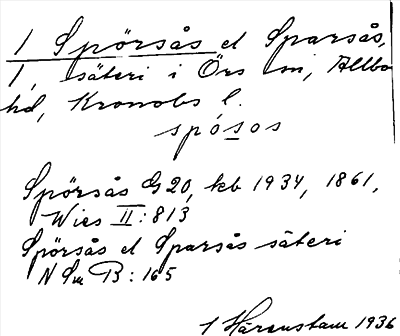 1 Spörsås el Sparsås,
1, säteri i Örs sn, Allbo
hd, Kronobs l.
spósos
Spörsås G20, kb 1934, 1861,
Wies II:813
Spörsås el Sparsås säteri
N Sm B:165
1 Härenstam 1936